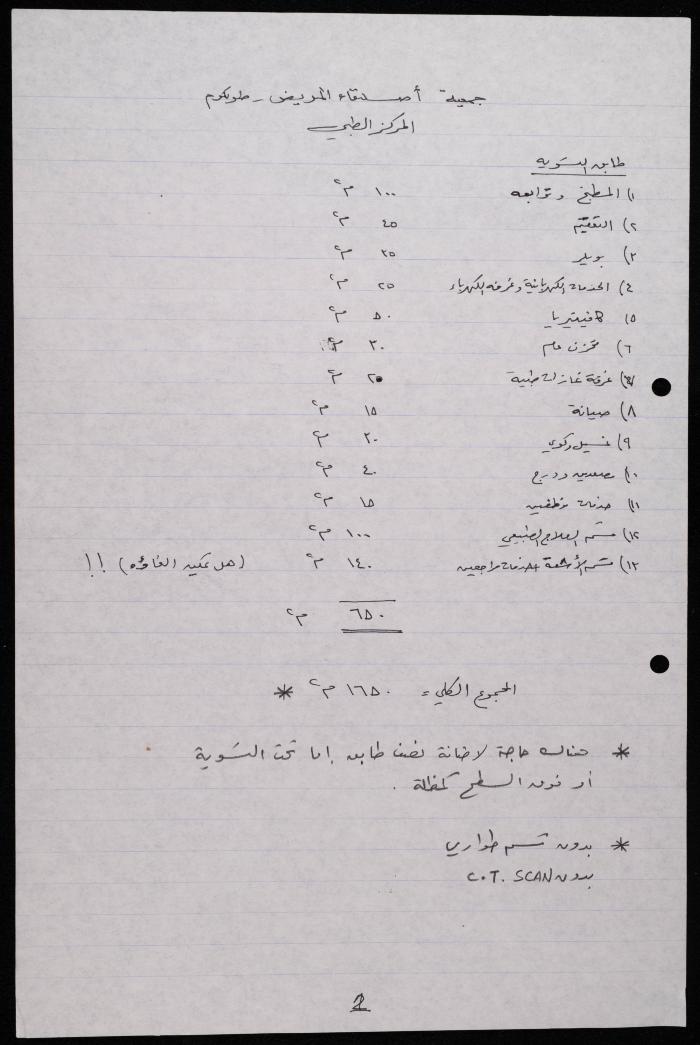 جمعية أصدقاء المريض - طولكرم
المركز الطبي
طابق التسوية
١) المطبخ وتوابعه ١٠٠ م٢
٢) التعقيم ٤٥ م٢
٣) بويلر ٣٥ م٢
٤) الخدمات الكهربائية وغرفة الكهرباء ٢٥ م٢
٥) كافيتيريا ٥٠ م٢
٦) مخزن عام ٣٠ م٢
٧) غرفة غازات طبية ٢٥ م٢
٨) صيانة ١٥ م٢
٩) غسيل وكوي ٣٠ م٢
١٠) مصعدين ودرج ٤٠ م٢
١١) خدمات موظفين ١٥ م٢
١٢) قسم العلاج الطبيعي ١٠٠ م٢
١٣) قسم الأشعة + خدمات مراجعين ١٤٠ م٢ (هل يمكن ) !!
٦٥٠ م٢
المجموع الكلي = ١٦٥٠ م٢ *
* هناك حاجة لاضافة نصف طابق إما تحت التسوية
أو فوق السطح كمظلة .
* بدون قسم طواريء
بدون C.T. SCAN
2